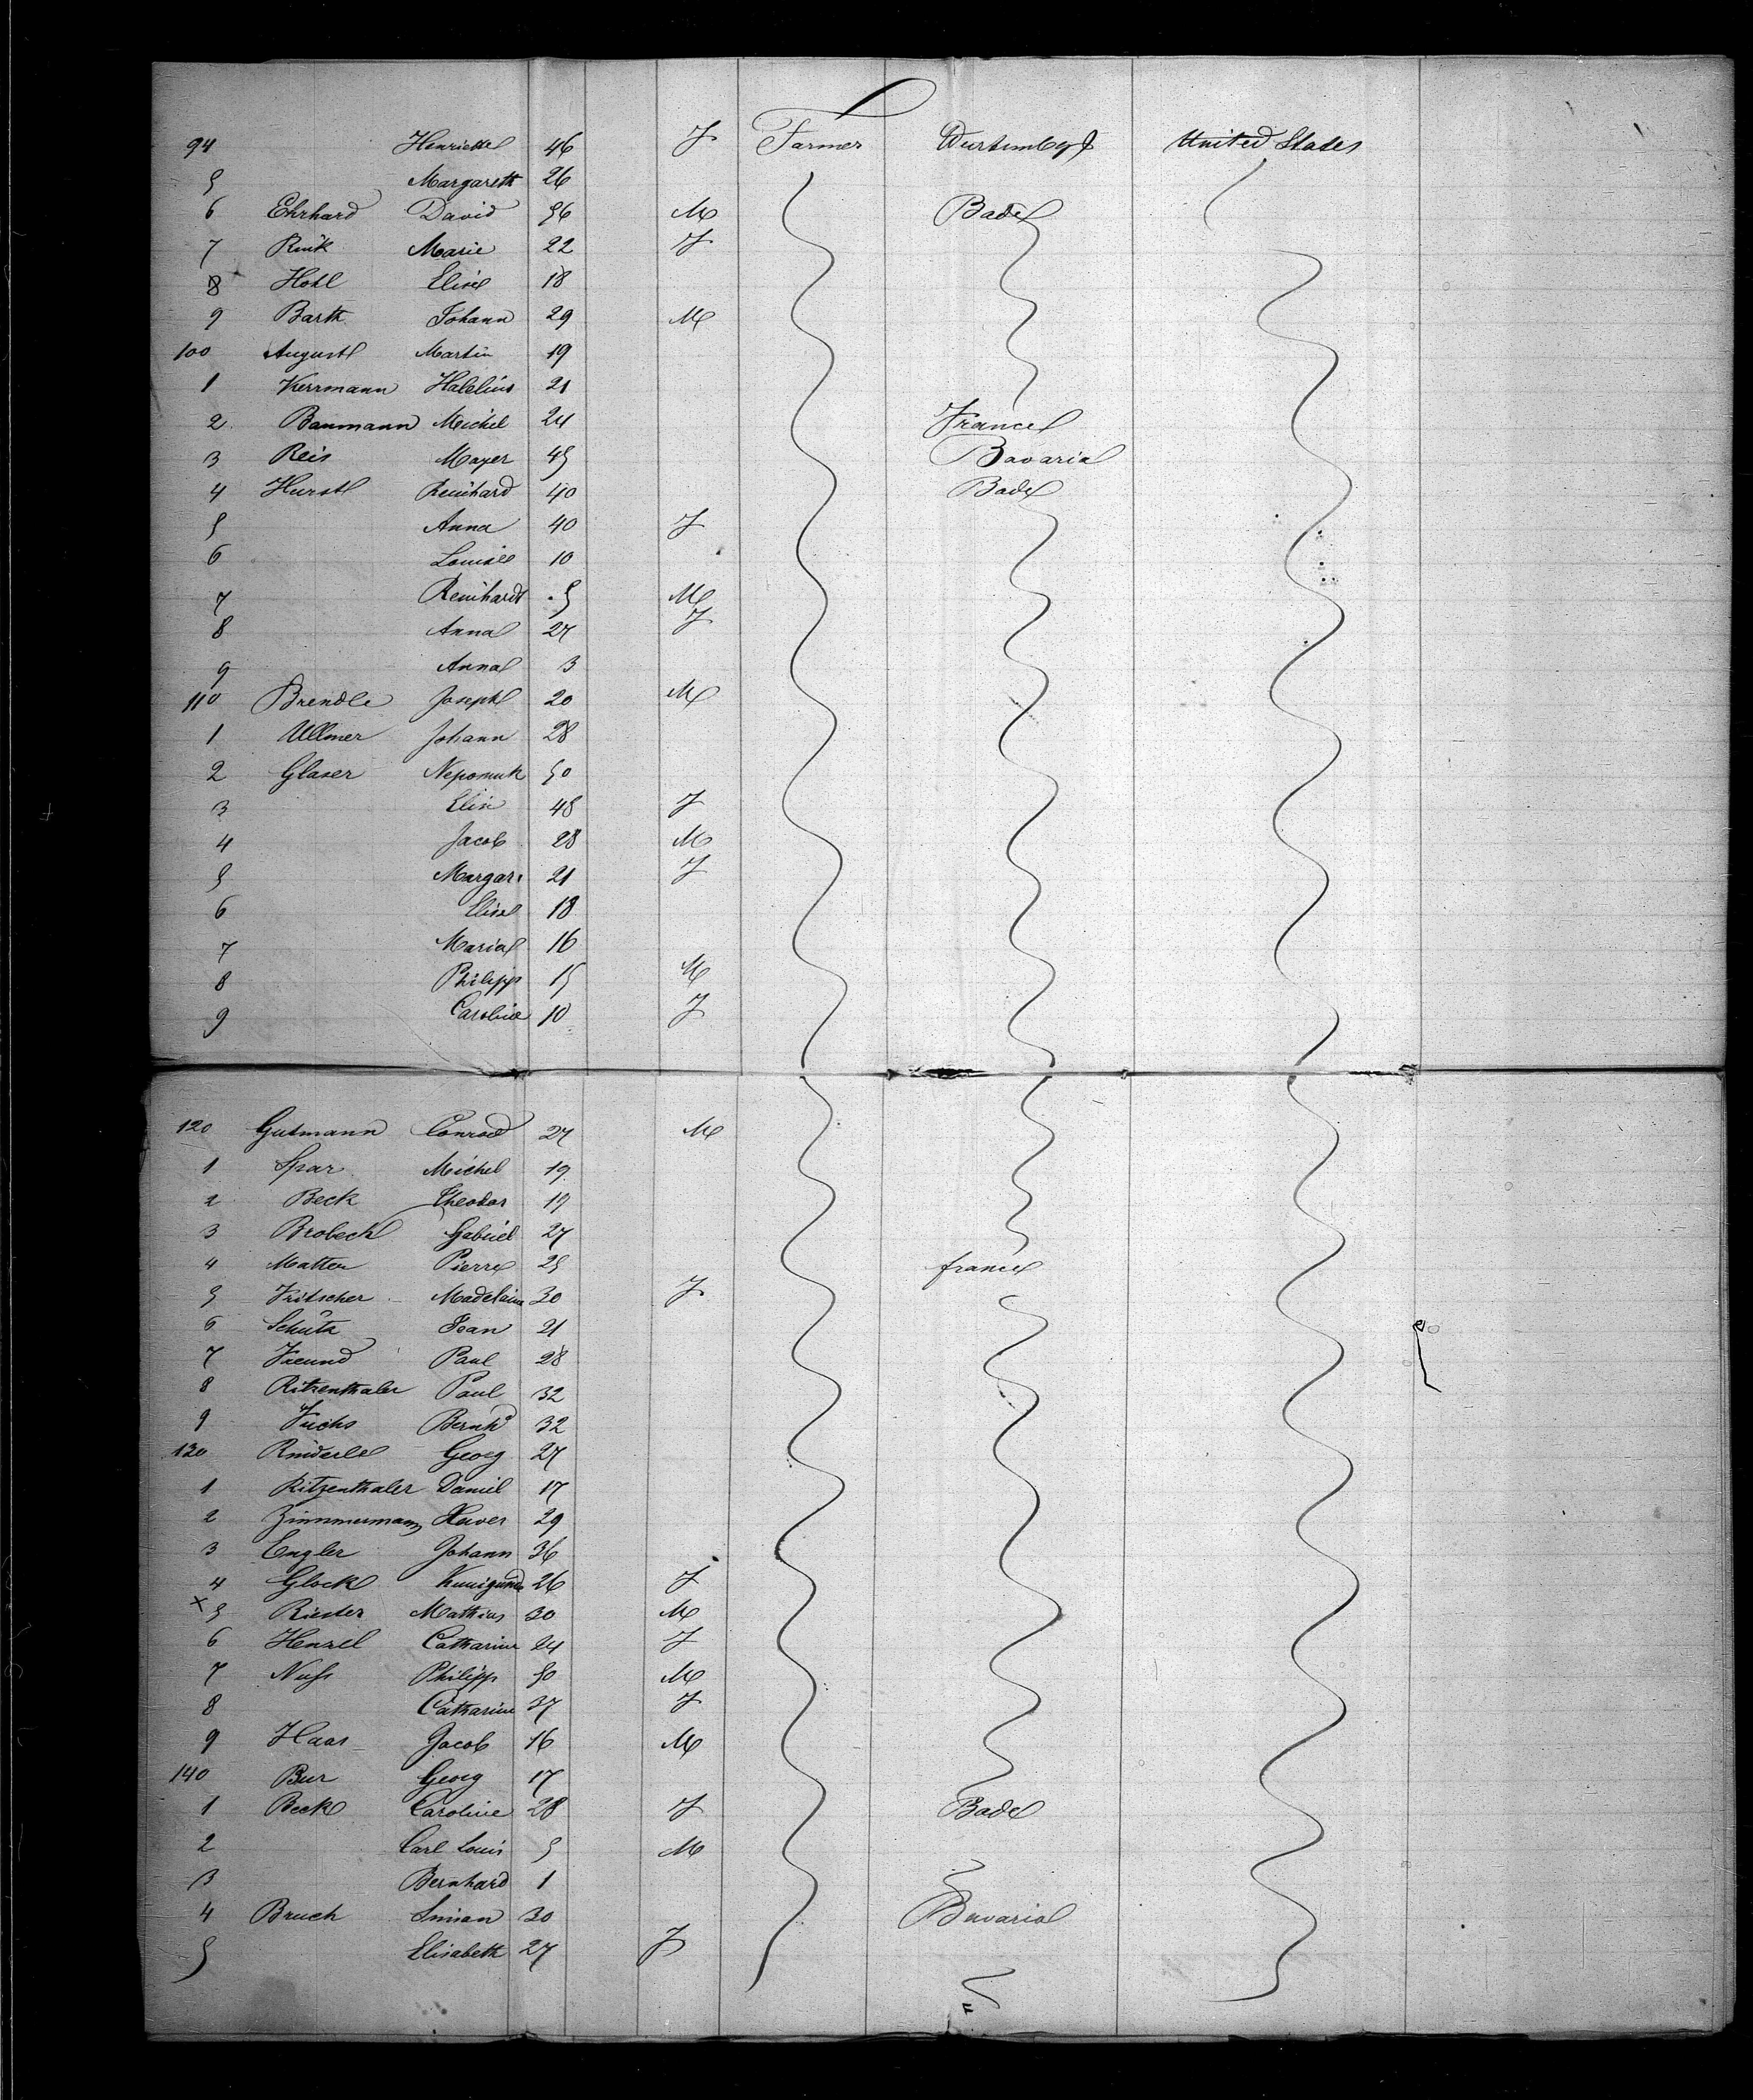 94 Henriette 46 F Farmer Würtemberg United States
5 Margareth 26
6 Ehrhard David 56 M Bade
7 Rink Marie 22 F
8 Hohl Elise 18
9 Barth Johann 29 M
100 August Martin 19
1 Kerrmann 21
2 Baumann Michel 24 France
3 Reis Mayer 45 Bavaria
4 Hurst Reinhard 40 Bade
5 Anna 40 F
6 Louise 10
7 Reinhardt 5 M
8 Anna 27 F
9 Anna 3
110 Brendle Joseph 20 M
1 Ullmer Johann 28
2 Glaser Nepomuk 50
3 Elis 48 F
4 Jacob 28 M
5 Margar 21 F
6 Elise 18
7 Maria 16
8 Philipp 15 M
9 Caroline 10 F
120 Gutmann Conrad 27 M
1 Spar Michel 19
2 Beck Theodor 19
3 Brobeck Gabriel 27
4 Matter Pierre 25 france
5 Fritscher Madelaine 30 F
6 Schütz Jean 21
7 Freund Paul 28
8 Ritzenthaler Paul 32
9 Fuchs Bernhd 32
130 Rinderle Georg 27
1 Ritzenthaler Daniel 17
2 Zimmermann Xaver 29
3 Engler Johann 36
4 Glock Kunigunde 26 F
x 5 Riester Mathias 30 M
6 Henzel Catharine 24 F
7 Nuss Philipp 50 M
8 Catharine 37 F
9 Haas Jacob 16 M
140 Bur Georg 17
1 Beck Caroline 28 F Bade
2 Carl Louis 5 M
3 Bernhard 1
4 Bruch Simon 30 Bavaria
5 Elisabeth 27 F